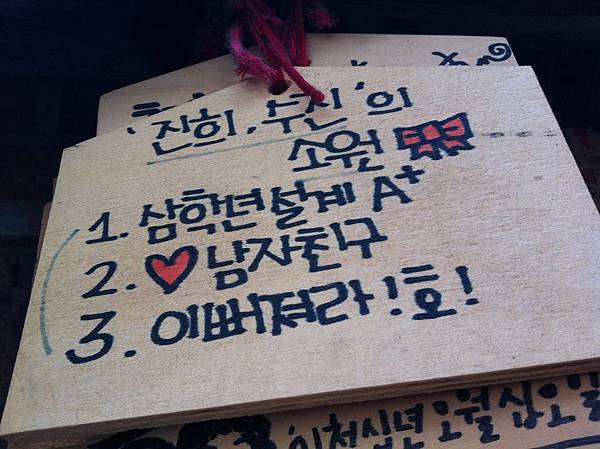 '진희, 수진'의
소원
1. 삼학년설계 A+
2. ♥남자친구
3. 이뻐져라!호!
이천십년 오월 십오일